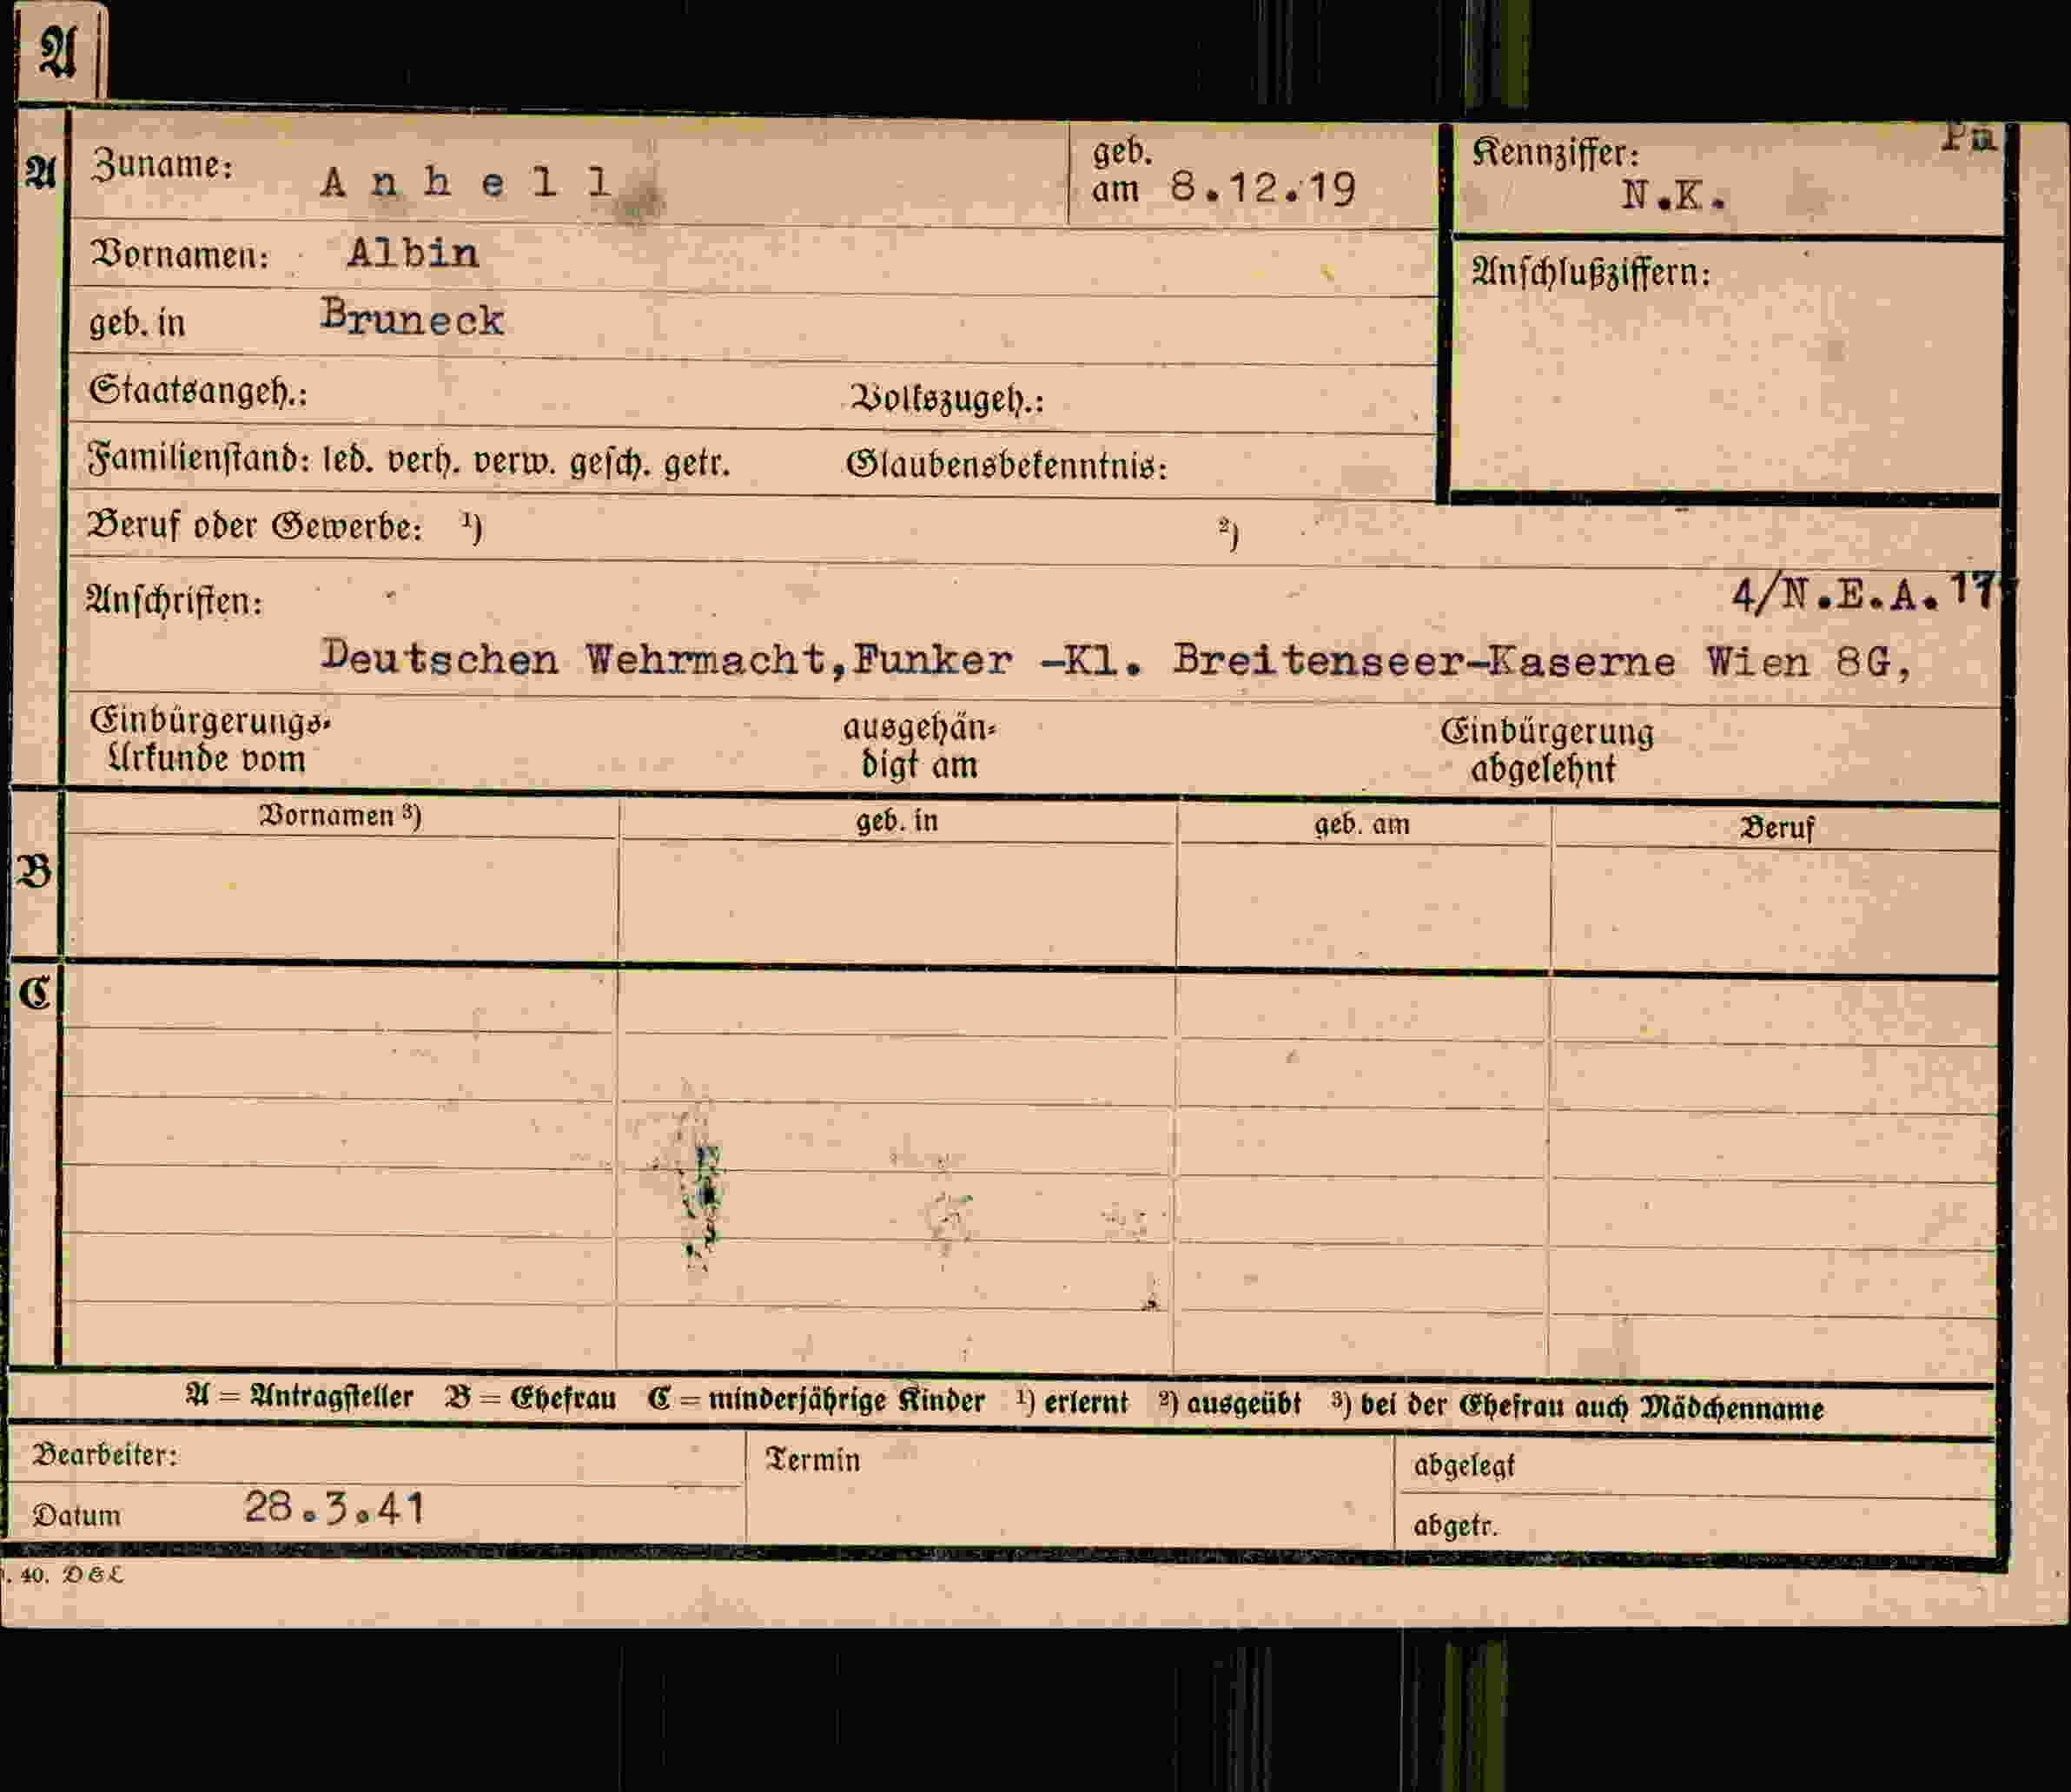 A
A Zuname: Anhell geb. am 8.12.19 Kennziffer: N.K. Pü
Vornamen: Albin Anschlußziffern:
geb. in Bruneck
Staatsangeh.: Volkszugeh.:
Familienstand: led. verh. verw. gesch. getr. Glaubensbekenntnis:
Beruf oder Gewerbe: 1) 2)
Anschriften: 4/N.E.A. 17
Deutschen Wehrmacht,Funker -Kl. Breitenseer-Kaserne Wien 8G,
Einbürgerungs- ausgehän- Einbürgerung
Urkunde vom digt am abgelehnt
Vornamen 3) geb. in geb. am Beruf
B
C
A = Antragsteller B = Ehefrau C = minderjährige Kinder 1) erlernt 2) ausgeübt 3) bei der Ehefrau auch Mädchenname
Bearbeiter: Termin abgelegt
Datum 28.3.41 abgetr.
. 40. D&L